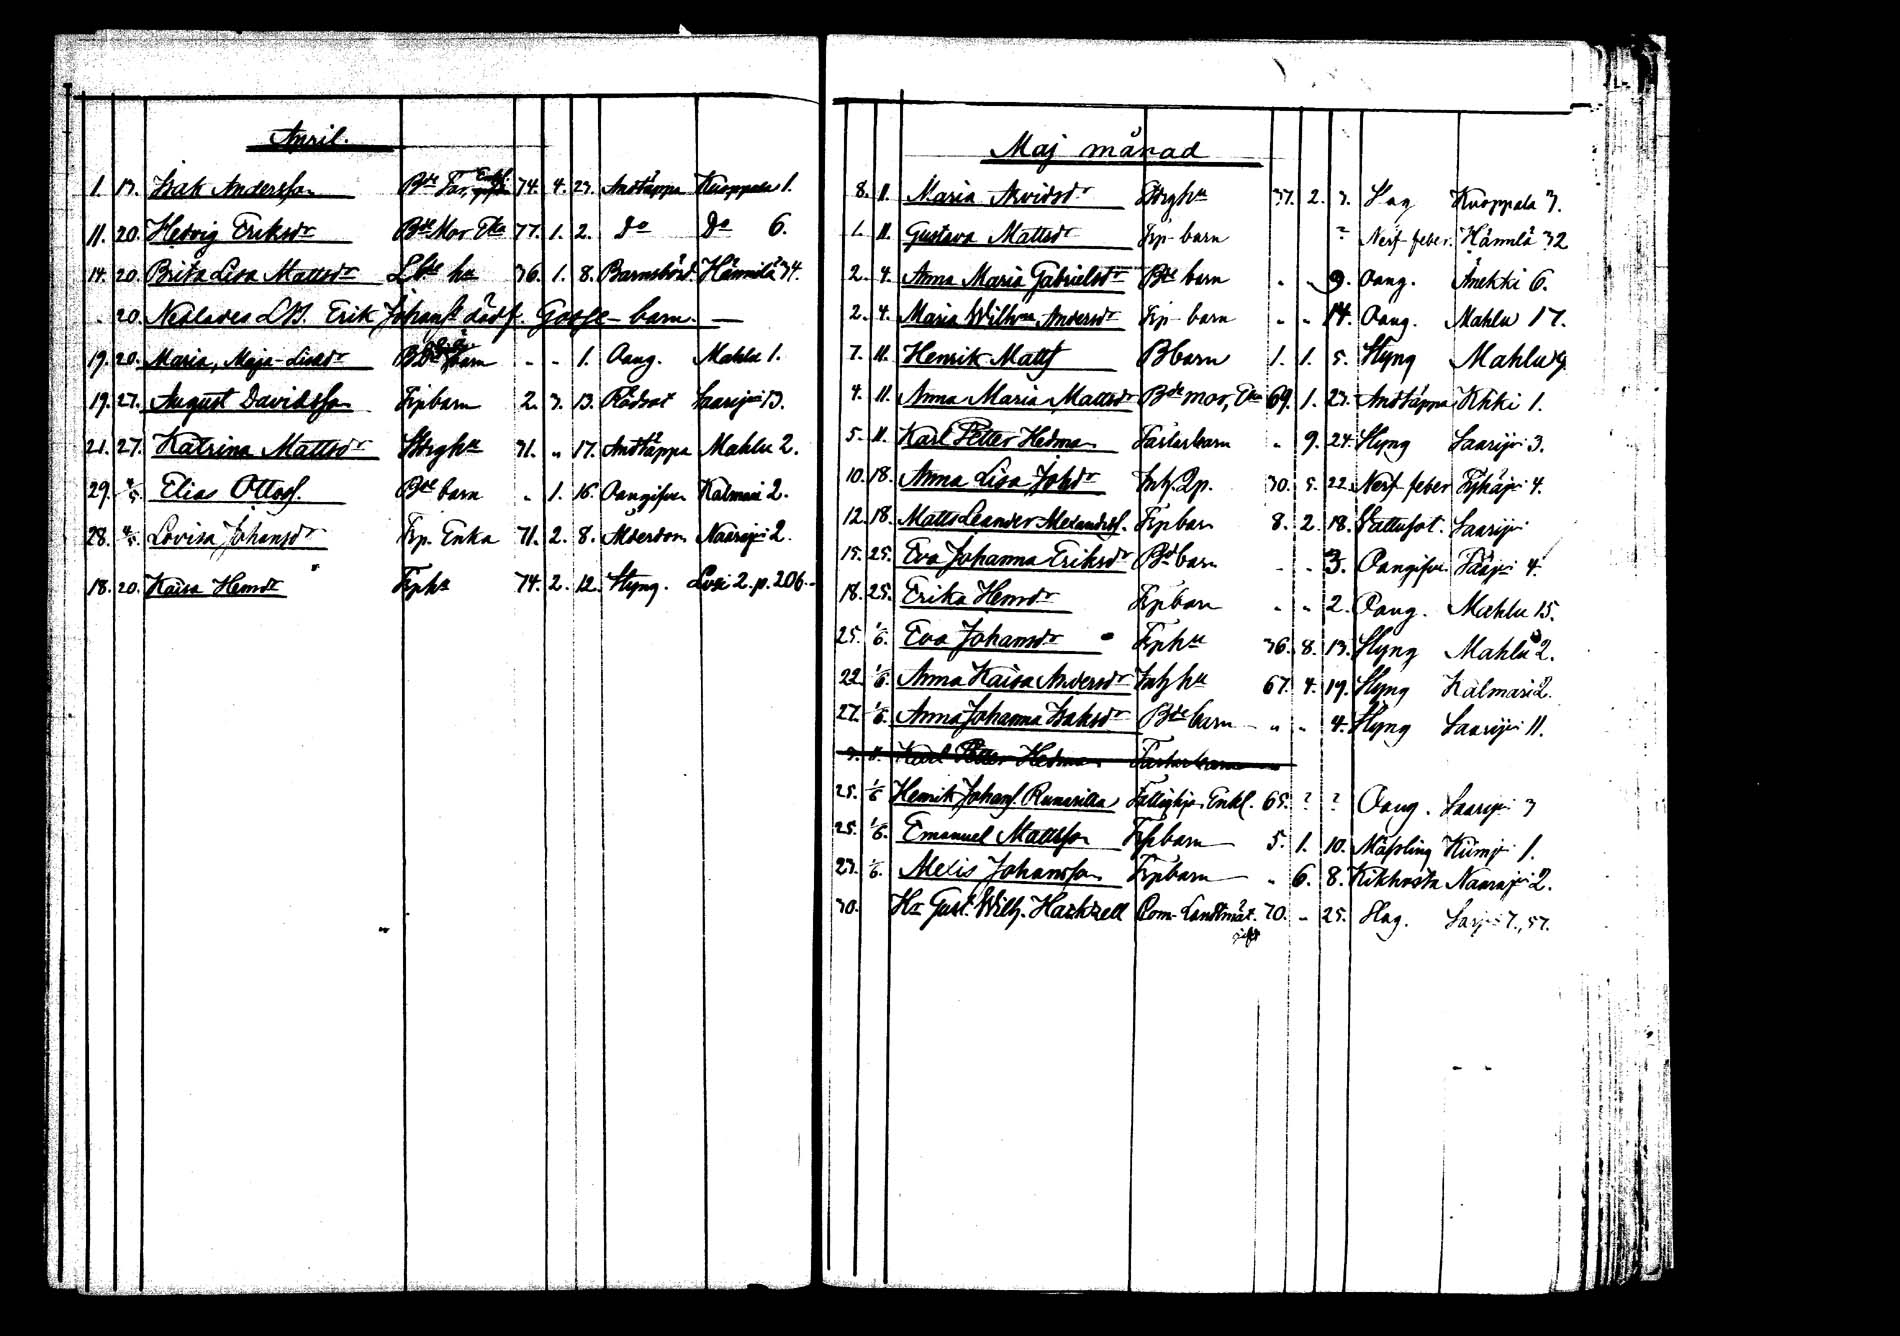 April.
1. 13. Isak Andersson Bde Far, Enkl. 74. 4. 23. Andtäppa Kuoppala 1.
11. 20. Hedvig Eriksdr Bde Mor Eka 77. 1. 2. Do Do 6.
14. 20. Brita Lisa Mattsdr Lbde hu 36. 1. 8. Barnsbörd. Hännilä 34.
. 20. Nedlades LB. Erik Johanss. dödf. Gosse-barn. —
19. 20. Maria, Maja-Lisadr barn - - 1. Oang. Mahlu 1.
19. 27. August Davidsson Trpbarn 2. 3. 13. Rödsot Saarijvi 13.
21. 27. Katrina Mattsdr hu 31. „ 17. Andtäppa Mahlu 2.
29. 4/5. Elias Ottoss. Bde barn . 1. 16. Oangifven Kalmari 2.
28. 4/5. Lovisa Johansdr Trp. Enka 71. 2. 8. Ålderdom Naarajvi 2.
18. 20. Kaisa Henrdr Trphu 74. 2. 12. Styng. 2. p. 206.
Maj månad
8. 11. Maria Arvidsdr 37. 2. 3. Slag Kuoppala 3.
1. 11. Gustava Mattsdr Trp-barn ? Nerf-feber. Hännilä 32
2. 4. Anna Maria Gabrielsdr Bde barn . . 9. Oang. Änekki 6.
2. 4. Maria Wilhna Andersdr Trp-barn „ „ 14. Oang. Mahlu 17.
7. 11. Henrik Matts. Bbarn 1. 1. 5. Styng Mahlu 9
4. 11. Anna Maria Mattsdr Bde mor, Eka 69. 1. 23. Andtäppa 1.
5. 11. Karl Petter Hedman barn „ 9. 24. Styng Saarijvi 3.
10. 18. Anna Lisa Johdr Inh. Qp. 30. 5. 22. Nerf-feber 4.
12. 18. Matts Leander Alexanders. Trpbarn 8. 2. 18. Vattusot. Saarijvi
15. 25. Eva Johanna Eriksdr Bdebarn - . 3. Oangifven. 4.
18. 25. Erika Henrdr Trpbarn „ „ 2. Oang. Mahlu 15.
25. 1/6. Eva Johansdr Trphu 36. 8. 13. Styng Mahlu 2.
22. 1/6. Anna Kaisa Andersdr Inhhu 67. 4. 19. Styng Kalmari 2.
27. 1/6. Anna Johanna Isaksdr Bdebarn „ „ 4. Styng Saarijvi 11.
11. Karl Petter Hedman
25. 1/6 Henrik Johans. Enkl. 65. ? ? Oang. Saarijvi 3
25. 1/6. Emanuel Mattsson Trpbarn 5. 1. 10. Mässling 1.
23. 1/6. Alexis Johansson Trpbarn „ 6. 8. Kikhosta Naarajvi 2.
30. Hr Gust. Wilh. Hackzell Com-Landtmät. 70. „ 25. Slag. 7., 57.
gift